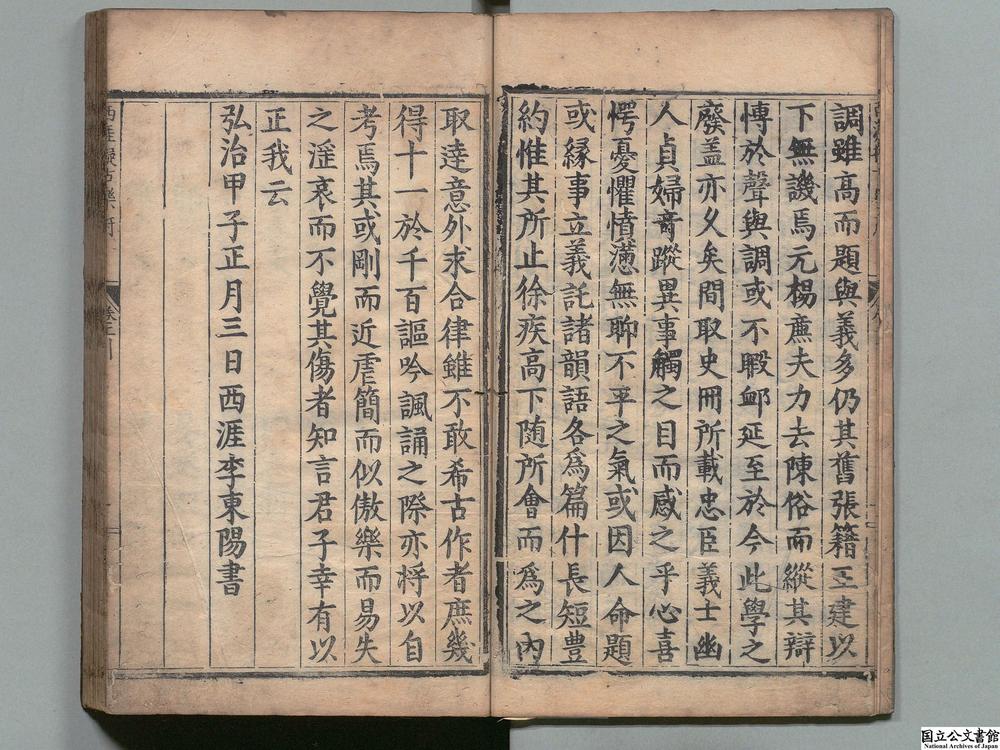 調雖高而題與義多仍其舊張籍王建以
下無譏焉元楊廉夫力去陳俗而縱其辯
博於聲與調或不暇䘏延至於今此學之
廢盖亦久矣間取史冊所載忠臣義士幽
人貞婦竒蹤異事觸之目而感之乎心喜
愕憂懼憤懣無聊不平之氣或因人命題
或縁事立義託諸韻語各爲篇什長短豊
約惟其所止徐疾高下随所會而爲之內
取逹意外求合律雖不敢希古作者庶幾
得十一於千百謳吟諷誦之際亦将以自
考焉其或剛而近虐簡而似傲樂而易失
之淫哀而不覺其傷者知言君子幸有以
正我云
弘治甲子正月三日西涯李東陽書
国立公文書館
National Archives of Japan